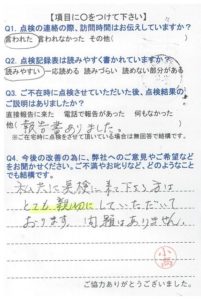 【項目に○をつけて下さい】
Q1. 点検の連絡の際、訪問時間はお伝えしていますか？
言われた 言われなかった その他( )
Q2. 点検記録表は読みやすく書かれていますか？
読みやすい 一応読める 読みづらい 読めない部分がある
Q3. ご不在時に点検させていただいた後、点検結果の
ご説明はありましたか？
直接報告に来た 電話で報告があった 何もなかった
他( 報告書ありました。 )
※ご在宅時に点検をさせて頂いている場合は無回答で結構です。
Q4. 今後の改善の為に、弊社へのご意見やご希望など
をお聞かせください。ご不満やお叱りなど、どのようなこと
でも結構です。
に点検に来て下さる方は
とても親切にしていただいて
おります。問題はありません。
ご協力ありがとうございました。